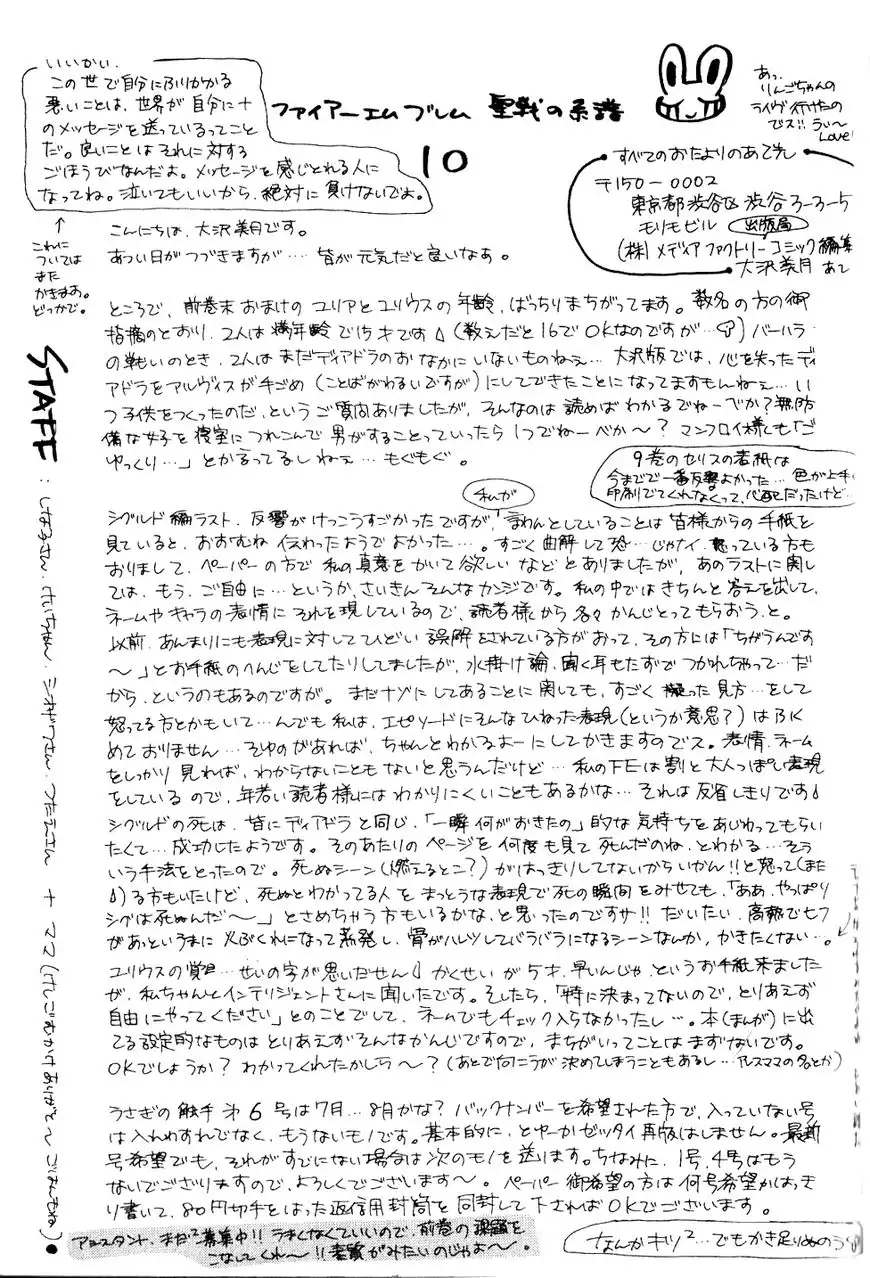 いいかい、
この世で自分にふりかかる
悪いことは、世界が自分に+
のメッセージを送っているってこと
だ。良いことはそれに対する
ごほうびなんだよ。メッセージを感じとれる人に
なってね。泣いてもいいから、絶対に負けないでよ。
↑
これに
ついては
また
かきますね。
どっかで。
ファイアーエムブレム 聖戦の系譜
10
あっ、
りんごちゃんの
ライヴ行けたの
でス!! うぃ〜
Love!
すべてのおたよりのあて先
〒150-0002
東京都渋谷区渋谷3-3-5
モリモビル 出版局
(株)メディアファクトリーコミック編集
大沢美月 あて
こんにちは、大沢美月です。
あつい日がつづきますが…皆が元気だと良いなあ。
ところで、前巻末おまけのユリアとユリウスの年齢、ばっちりまちがってます。数名の方の御
指摘のとおり、2人は満年齢で15才です (数えだと16でOKなのですが…) バーハラ
の戦いのとき、2人はまだディアドラのおなかにいないものねぇ…大沢版では、心を失ったディ
アドラをアルヴィスが手ごめ(ことばがわるいですが)にしてできたことになってますもんねぇ…い
つ子供をつくったのだ、というご質問ありましたが、そんなのは読めばわかるでねーべか?無防
備な女子を寝室につれこんで男がすることっていったら1つでねーべか〜?マンフロイ様も「ご
ゆっくり…」とか言ってるしねぇ…もぐもぐ。
9巻のセリスの表紙は
今までで一番反響よかった…色が上手く
印刷でてくれなくって、心配だったけど…
シグルド編ラスト、反響がけっこうすごかったですが、私が言わんとしていることは皆様からの手紙を
見ていると、おおむね伝わったようでよかった…。すごく曲解して恐…じゃナイ、怒っている方も
おりまして、ペーパーの方で私の真意をかいて欲しいなどとありましたが、あのラストに関し
ては、もう、ご自由に…というか、さいきんそんなカンジです。私の中ではきちんと答えを出して、
ネームやキャラの表情にそれを現しているので、読者様から各々かんじとってもらおう、と。
以前、あんまりにも表現に対してひどい誤解をされている方がおって、その方には「ちがうんです
〜」とお手紙のへんじをしてたりしてましたが、水掛け論、聞く耳もたずでつかれちゃって…だ
から、というのもあるのですが。まだナゾにしてあることに関しても、すごく擬った見方…をして
怒ってる方とかもいて…んでも私は、エピソードにそんなひねった表現(というか意思?)はひK
めておりません…そゆのがあれば、ちゃんとわかるよーにしてかきますのでス。表情、ネーム
をしっかり見れば、わからないこともないと思うんだけど…私のFEは割と大人っぽい表現
をしているので、年若い読者様にはわかりにくいこともあるかな…それは反省しきりです
シグルドの死は、皆にディアドラと同じ、「一瞬何がおきたの」的な気持ちをあじわってもらい
たくて…成功したようです。そのあたりのページを何度も見て死んだのね、とわかる…そう
いう手法をとったので。死ぬシーン(燃えるとこ?)がはっきりしてないからいかん!!と怒って(また
)る方もいたけど、死ぬとわかってる人をまっとうな表現で死の瞬間をみせても、「ああ、やっぱり
シグは死ぬんだ〜」とさめちゃう方もいるかな、と思ったのですサ!! だいたい、高熱でヒフ
があっというまに火ぶくれになって蒸発し、骨がハレツしてバラバラになるシーンなんか、かきたくない…。
ユリウスの覚…せいの字が思いだせん かくせいが5才、早いんじゃというお手紙来ました
が、私ちゃんとインテリジェントさんに聞いたです。そしたら、「特に決まってないので、とりあえず
自由にやってください」とのことでして、ネームでもチェック入らなかったし…。本(まんが)に出
てる設定的なものはとりあえずそんなかんじですので、まちがいってことはまずないです。
OKでしょうか?わかってくれたかしら〜?(あとで向こうが決めてしまうこともあるし…アレスママの名とか)
うさぎの触手 第6号は7月…8月かな?バックナンバーを希望された方で、入っていない号
は入れわすれでなく、もうないモノです。基本的に、とゆーかゼッタイ再版はしません。最新
号希望でも、それがすでにない場合は次のモノを送ります。ちなみに、1号、4号はもう
ないでございますので、よろしくでございます〜。ペーパー御希望の方は何号希望かはっき
り書いて、80円切手をはった返信用封筒を同封して下さればOKでございます。
STAFF:しなるさん、けいちゃん、シオドワさん、つたえさん + ママ (けしごむかけありがと〜 ごはんもね)
アシスタント、まだ2募集中!! うまくなくていいので、前巻の課題を
こなしてくれ〜!! 素質がみたいのじゃよ〜。
なんかキツ2…でもかき足りぬのう